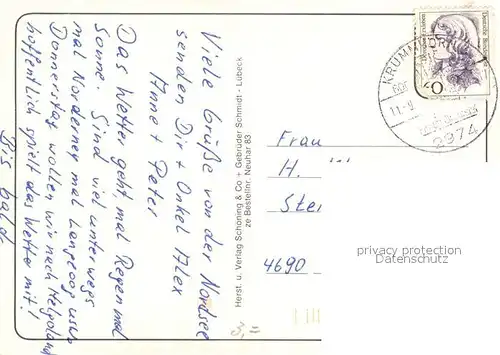 Viele Grüße von der Nordsee
senden Dir + Onkel Alex
Annet + Peter
Das Wetter geht, mal Regen mal
Sonne. Sind viel unterwegs
mal Norderney mal Langeoog usw.
Donnerstag wollen wir nach Helgoland
hoffentlich spielt das Wetter mit!
Bis bald
Herst. u. Verlag Schöning & Co + Gebrüder Schmidt - Lübeck
ze Bestellnr. Neuhar 83
Deutsche Bundes
KRUMMHÖRN
11.-9
2974
Frau
H.
Ste
4690
privacy protection
Datenschutz
3,=